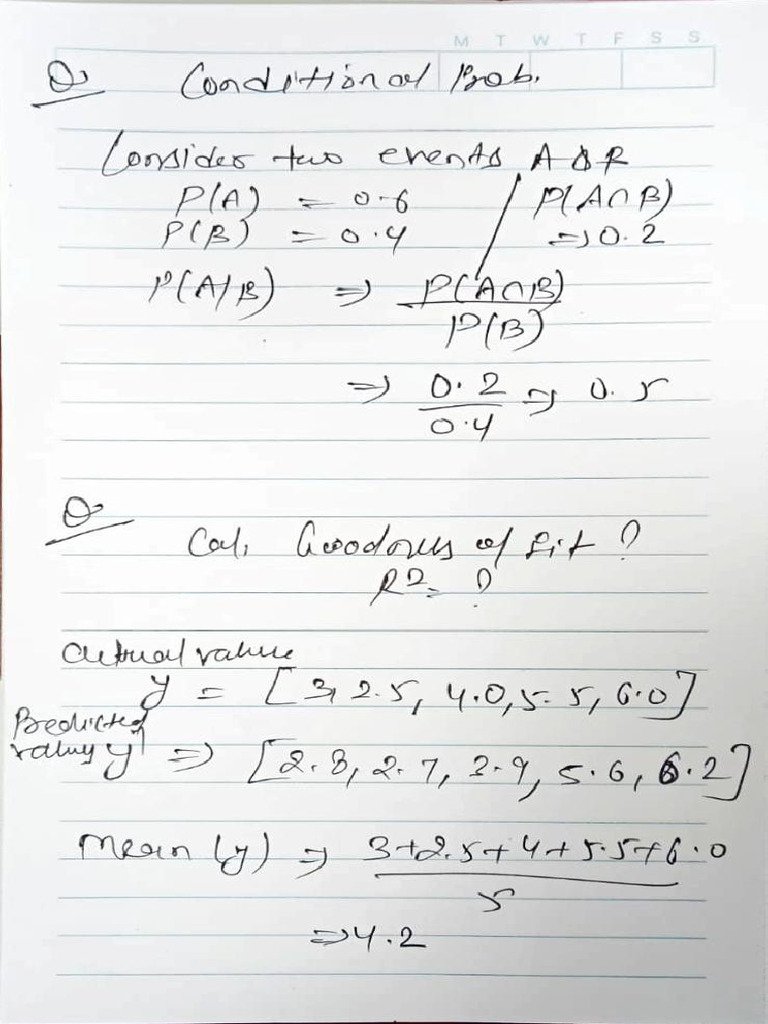 M T W T F S S
Q Conditional Prob.
Consider two events A & B
P(A) = 0.6 / P(A∩B)
P(B) = 0.4 ⇒ 0.2
P(A/B) ⇒ P(A∩B)
P(B)
⇒ 0.2 ⇒ 0.5
0.4
Q
Cal. Goodness of fit ?
R2 = ?
Actual value
y = [3, 2.5, 4.0, 5.5, 6.0]
Predicted
value y^1 ⇒ [2.8, 2.7, 3.9, 5.6, 6.2]
Mean (y) ⇒ 3+2.5+4+5.5+6.0
5
⇒ 4.2